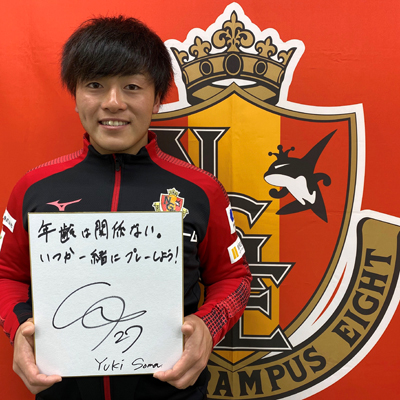 年齢は関係ない。
いつか一緒にプレーしよう!
27
Yuki Soma
NGE
GRAMPUS EIGHT